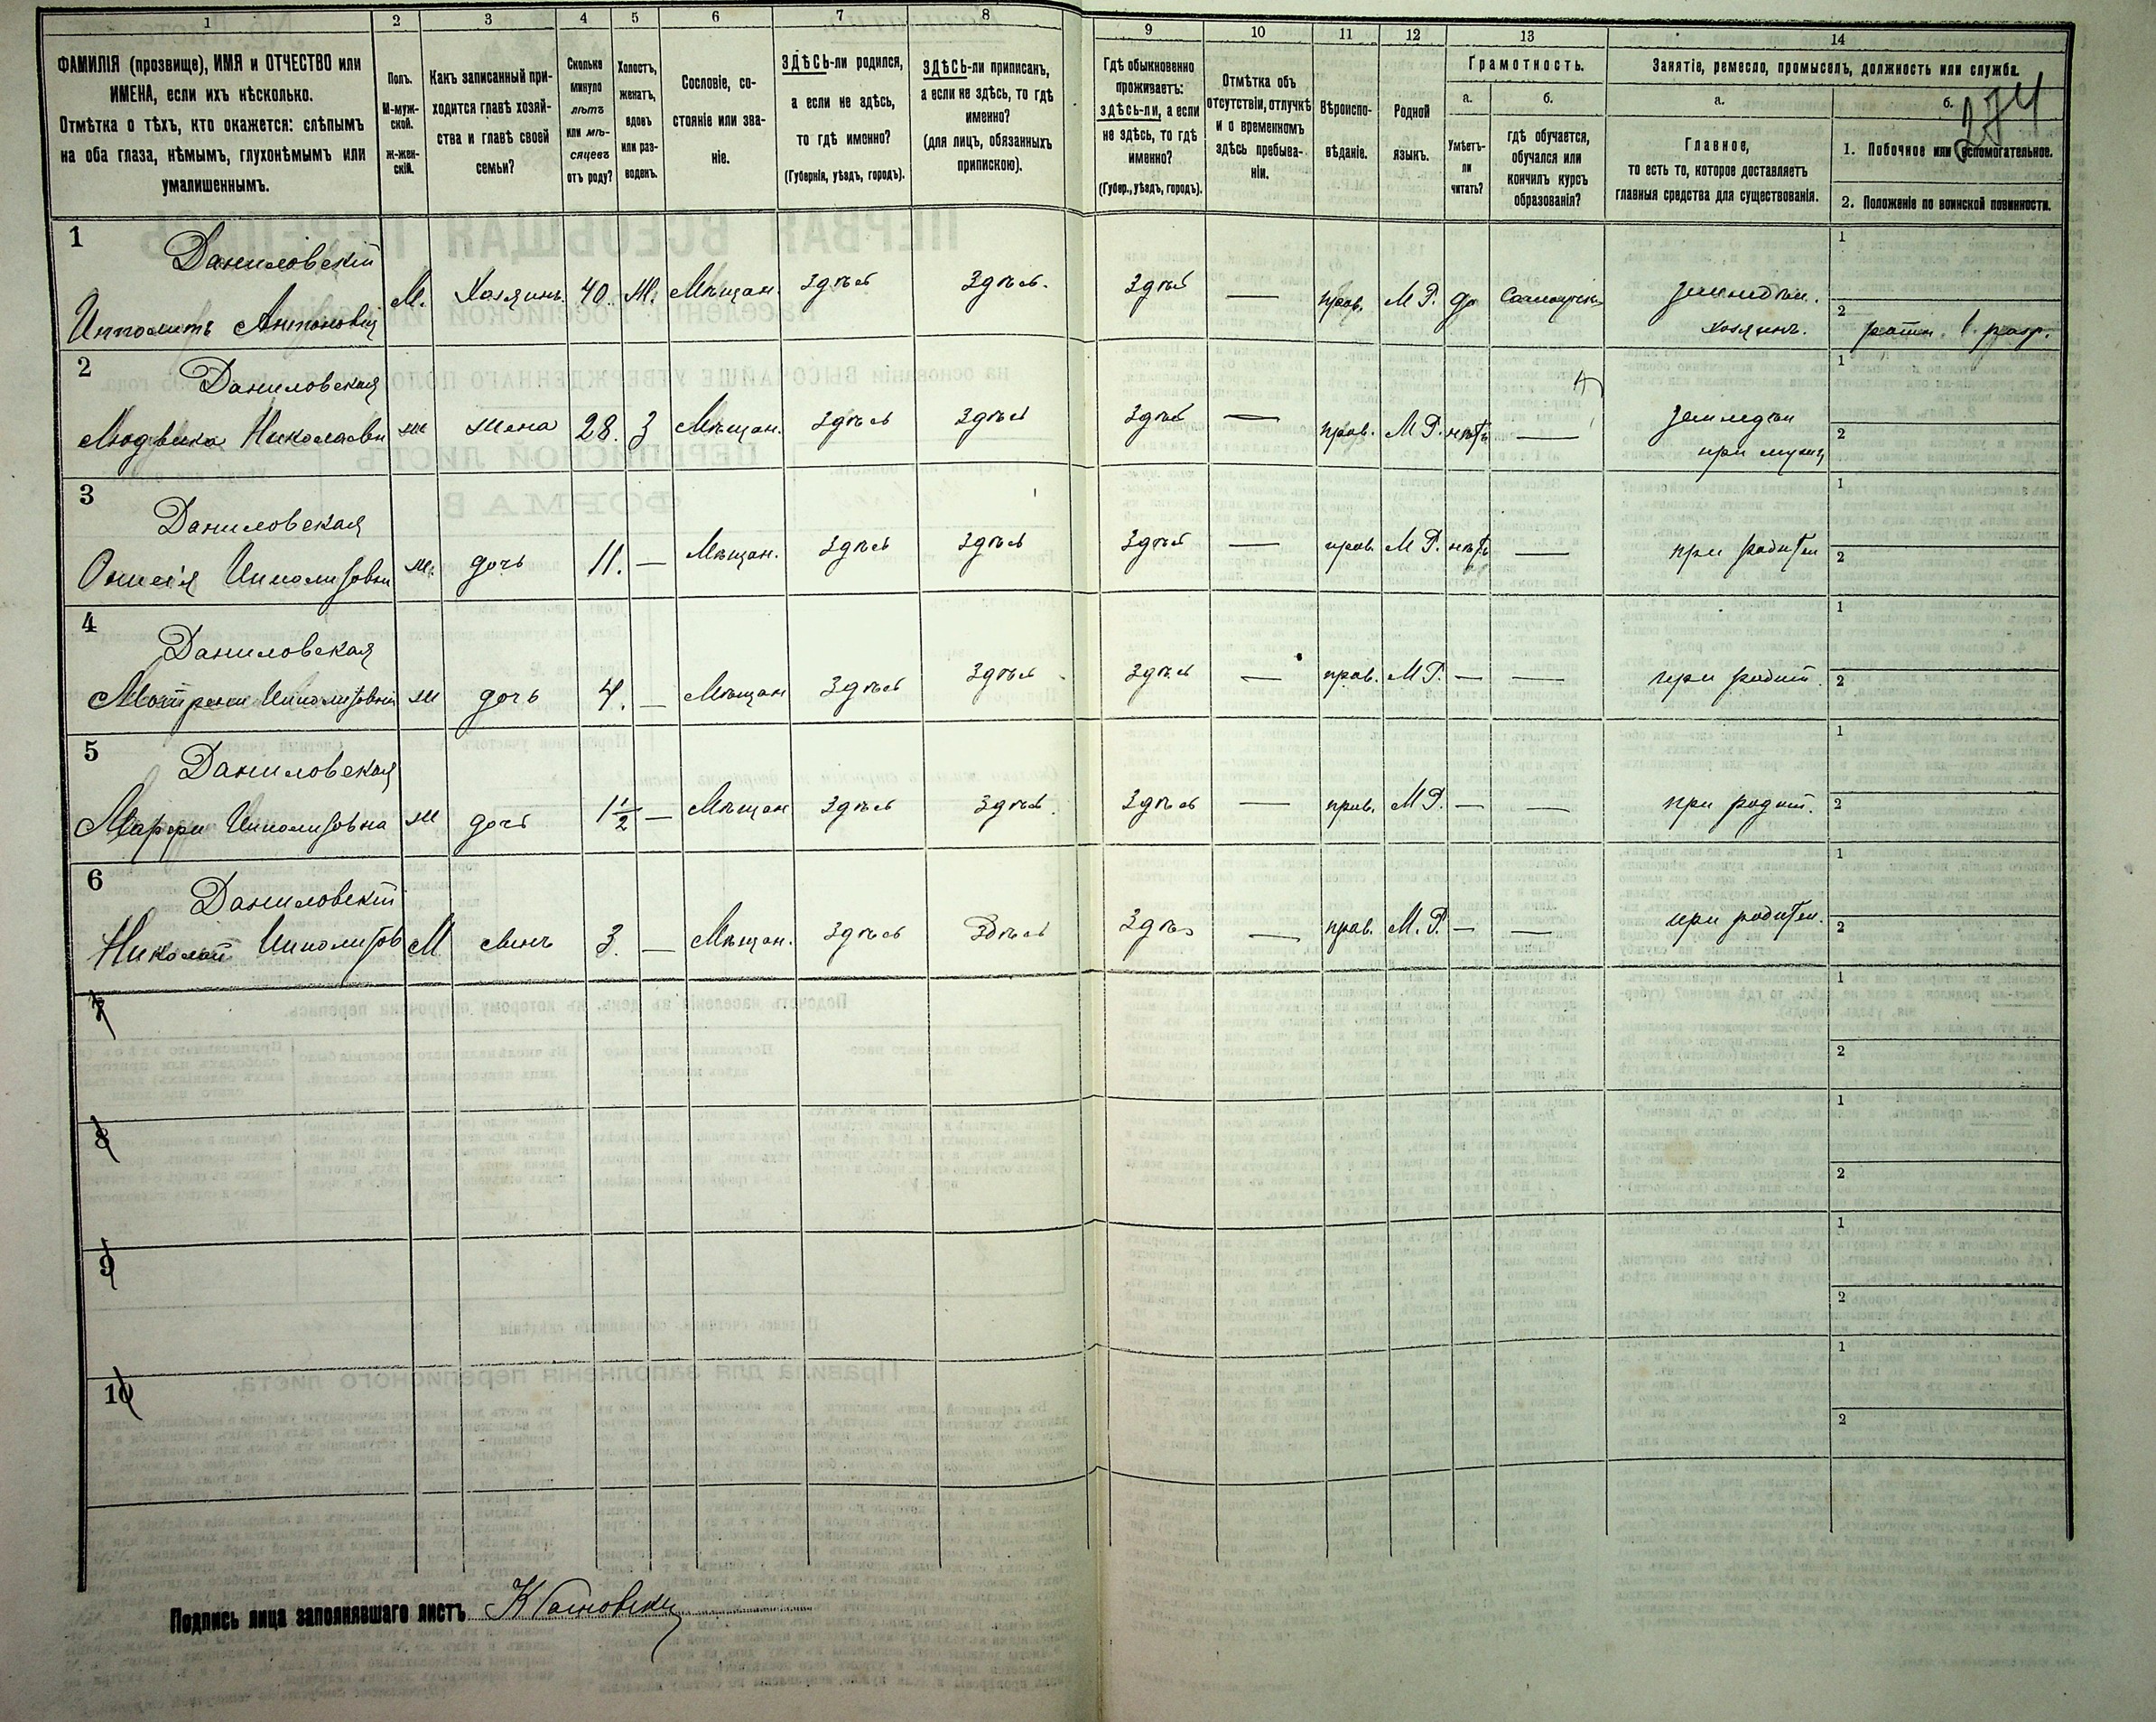 1 2 3 4 5 6 7 8 9 10 11 12 13 14
ФАМИЛІЯ (прозвище), ИМЯ и ОТЧЕСТВО или
ИМЕНА, если ихъ нѣсколько.
Отмѣтка о тѣхъ, кто окажется: слѣпымъ
на оба глаза, нѣмымъ, глухонѣмымъ или
умалишеннымъ.
Полъ.
М-муж-
ской.
ж-жен-
скій.
Какъ записанный при-
ходится главѣ хозяй-
ства и главѣ своей
семьи?
Сколько
минуло
лѣтъ
или мѣ-
сяцевъ
отъ роду?
Холостъ,
женатъ,
вдовъ
или раз-
веденъ.
Сословіе, со-
стояніе или зва-
ніе.
ЗДѢСЬ-ли родился,
а если не здѣсь,
то гдѣ именно?
(Губернія, уѣздъ, городъ).
ЗДѢСЬ-ли приписанъ,
а если не здѣсь, то гдѣ
именно?
(для лицъ, обязанныхъ
припискою).
Гдѣ обыкновенно
проживаетъ:
здѣсь-ли, а если
не здѣсь, то гдѣ
именно?
(Губер., уѣздъ, городъ).
Отмѣтка объ
отсутствіи, отлучкѣ
и о временномъ
здѣсь пребыва-
ніи.
Вѣроиспо-
вѣданіе.
Родной
языкъ.
Грамотность.
а.
Умѣетъ-
ли
читать?
б.
гдѣ обучается,
обучался или
кончилъ курсъ
образованія?
Занятіе, ремесло, промыселъ, должность или служба.
а.
Главное,
то есть то, которое доставляетъ
главныя средства для существованія.
б.
274
1. Побочное или вспомогательное.
2. Положеніе по воинской повинности.
1
Даниловскій
Ипполитъ Антоновичъ М. Хозяинъ. 40. Ж. Мѣщан. Здѣсь Здѣсь. Здѣсь — прав. М Р. да
хозяинъ.
1
2 ратн. 1. разр.
2
Даниловская
Людвика Николаевн ж жена 28. З Мѣщан. Здѣсь Здѣсь Здѣсь — прав. М Р. нѣтъ —
1
2
3
Даниловская
Ипполитовн ж. дочь 11. — Мѣщан. Здѣсь Здѣсь Здѣсь — прав. М Р. нѣтъ — при родител
1
2
4
Даниловская
Мотрона Ипполитовна ж дочь 4. — Мѣщан Здѣсь Здѣсь Здѣсь — прав. М Р. — — при родит.
1
2
5
Даниловская
Марфа Ипполитовна ж дочь 1 1/2 — Мѣщан Здѣсь Здѣсь. Здѣсь — прав. М Р. — — при родит.
1
2
6
Даниловскій
Николай Ипполитов М сынъ 3. — Мѣщан. Здѣсь Здѣсь Здѣсь — прав. М. Р. — — при родител.
1
2
7
1
2
8
1
2
9
1
2
10
1
2
Подпись лица заполнявшаго листъ